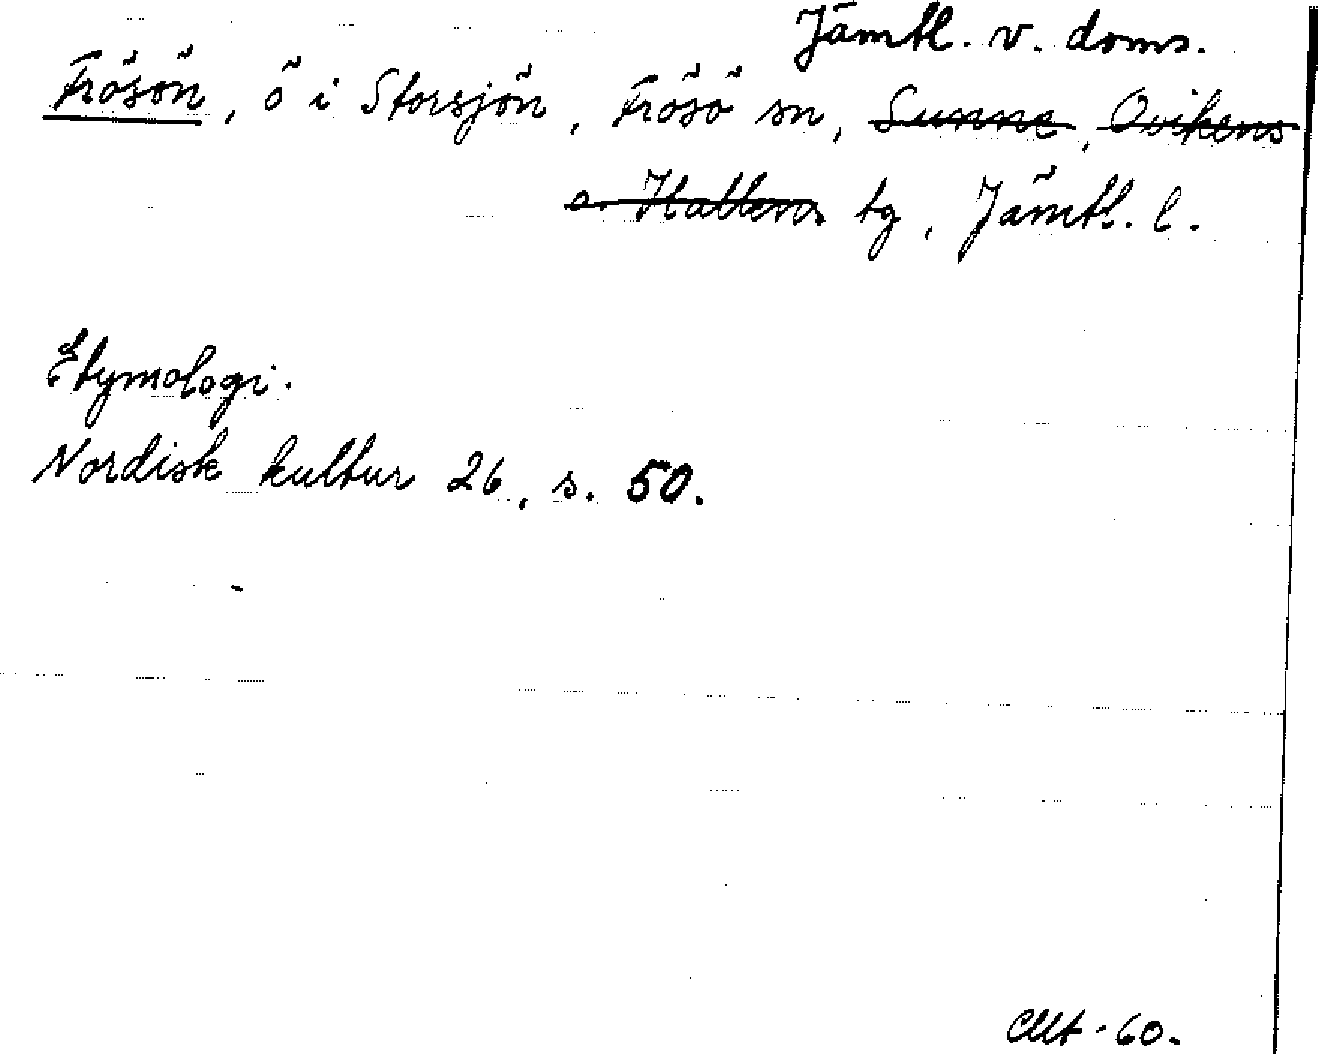 Jämtl. v. doms.
Frösön, ö i Storsjön, Frösö sn, Sunne, Ovikens
o. Hallens tg, Jämtl. l.
Etymologi.
Nordisk kultur 26, s. 50.
-60.